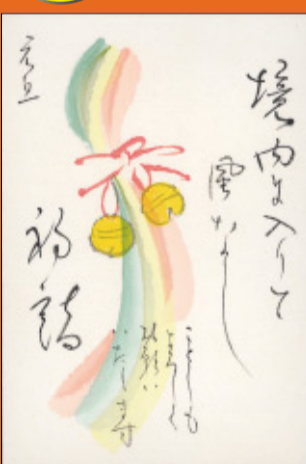 境内に入りて
風なし
ことしも
よろしく
お願い
いたします
初詣
元旦